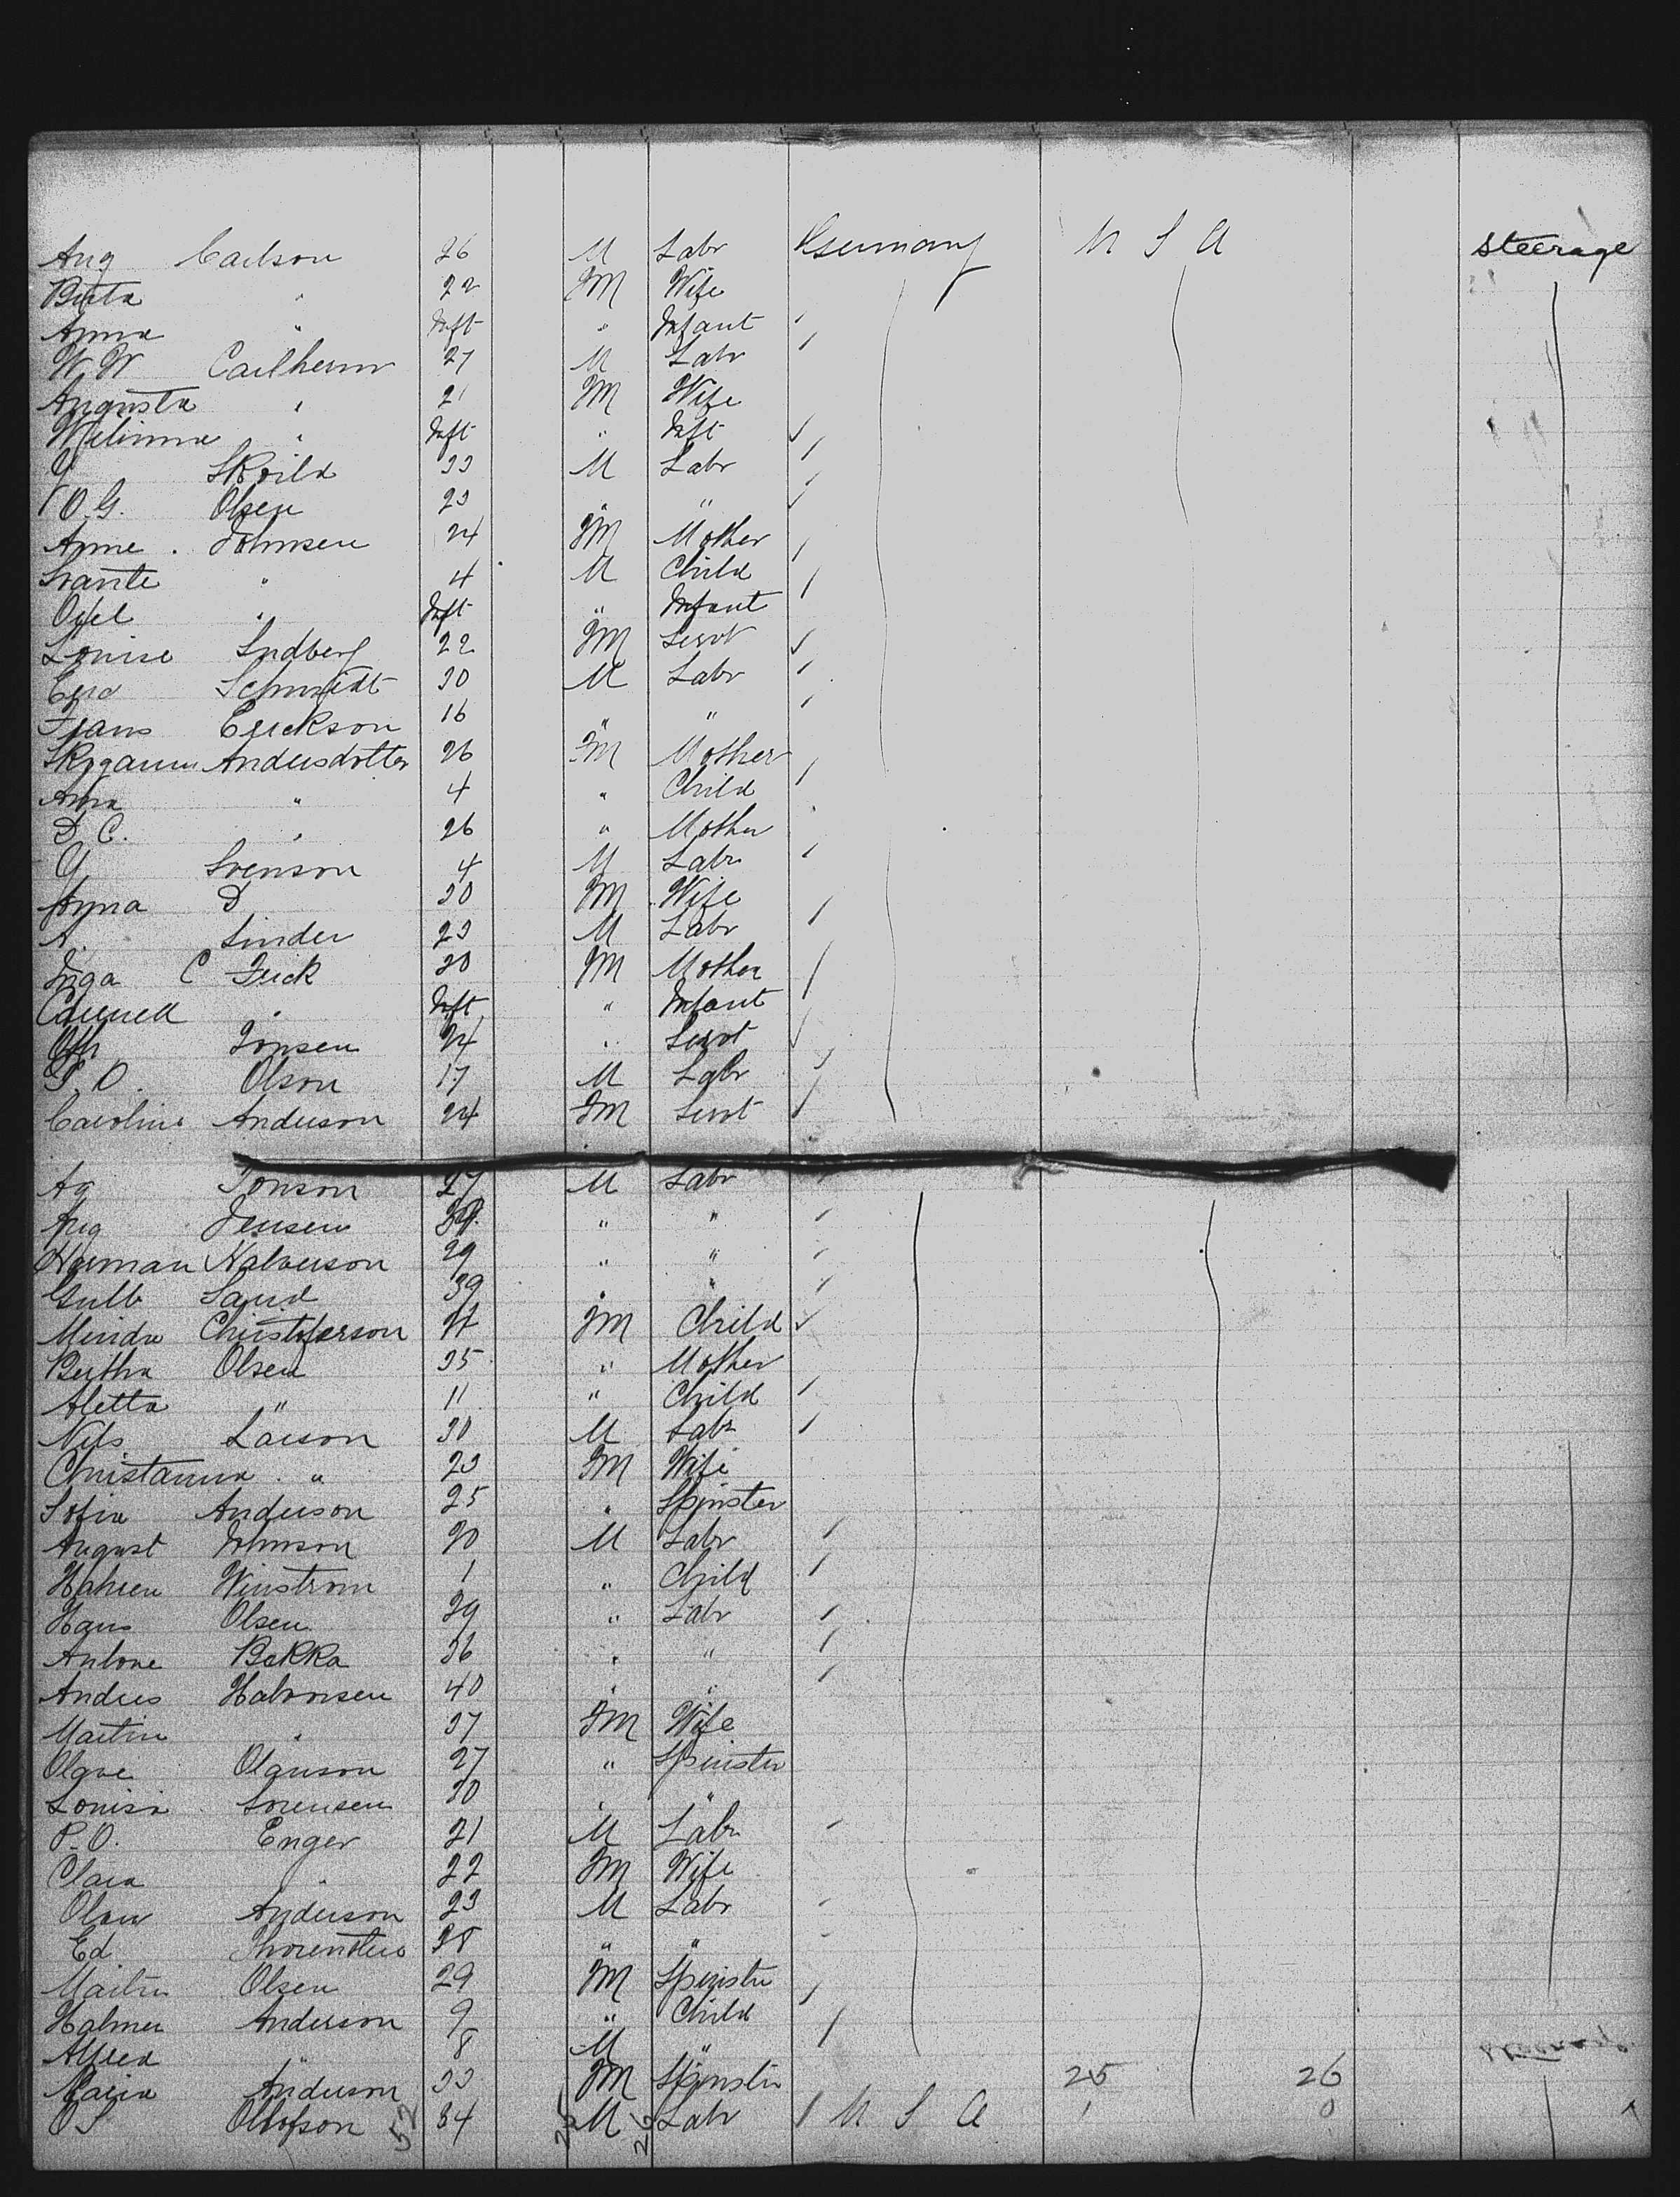 Aug Carlson 26 M Labr Germany U S A Steerage
Beata " 22 FM Wife
Anna " Inft " Infant
W. W Carlherm 27 M Labr
Augusta " 21 FM Wife
" Inft " Inft
33 M Labr
O. G. Olsen 23 " "
Anne Johnsen 24 FM Mother
Svante " 4 M Child
" Inft " Infant
Louise Sudberg 22 FM Servt
Schmidt 30 M Labr
Frans Erickson 16 " "
Andersdotter 26 FM Mother
Anna " 4 " Child
D C. " 26 " Mother
Svenson 4 M Labr
Anna D 30 FM Wife
A. Linder 23 M Labr
Inga C Frick 30 FM Mother
" Inft " Infant
Jonsen 24 " Servt
P. O. Olson 17 M Labr
Caroline Anderson 24 FM Servt
Ag Jonson 27 M Labr
Aug Jensen " "
Herman Halverson 29 " "
Gulb 39 " "
Minda Christoferson FM Child
Bertha Olsen 35 " Mother
Aletta " 11 " Child
Nils Larson 30 M Labr
Christanna " 23 FM Wife
Sofia Anderson 25 " Spinster
August Johnson 20 M Labr
Winstrom 1 " Child
Hans Olsen 29 " Labr
Antone Bakka 36 " "
Andres Halvorsen 40 " "
Martin " 37 FM Wife
Olave Olauson 27 " Spinster
Louisa Sorensen 20 " "
P. O. Enger 21 M Labr
Clara " 22 FM Wife
Anderson 23 M Labr
Ed 28 " "
Martin Olsen 29 FM Spinster
Halmer Anderson 9 " Child
Alfred " 8 M "
Maria Anderson 33 FM Spinster 25 26
O S Ollofson 34 M Labr U S A 1 0
52 25 26